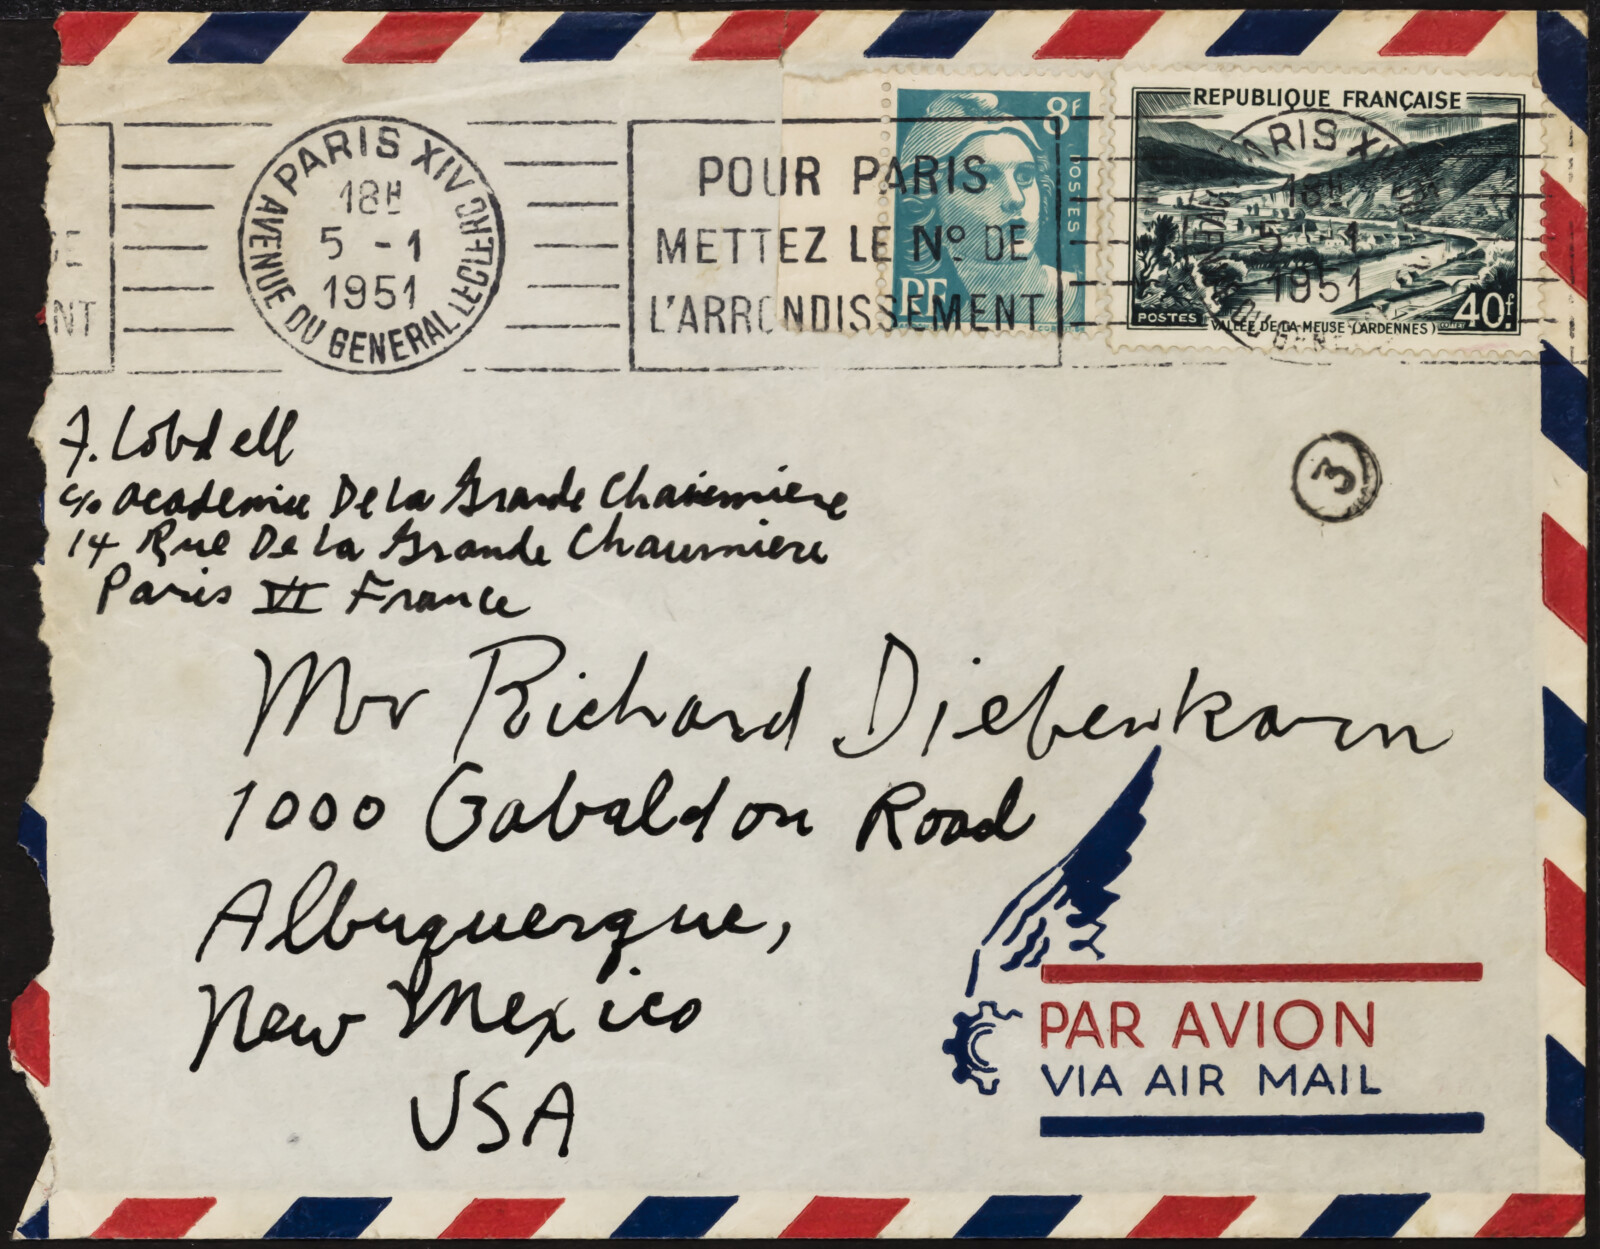 DE
NT
PARIS XIV
AVENUE DU GENERAL LECLERC
18H
5 -1
1951
POUR PARIS
METTEZ LE Nº DE
L'ARRONDISSEMENT
8F
POSTES
RF
REPUBLIQUE FRANÇAISE
PARIS XIV
18H
5 -1
1951
AVENUE DU GENE
POSTES VALLÉE DE LA MEUSE (ARDENNES) 40f.
F. Lobdell
c/o Academie De La Grande Chaumiere
14 Rue De La Grande Chaumiere
Paris VI France
3
Mr Richard Diebenkorn
1000 Gabaldon Road
Albuquerque,
New Mexico
USA
PAR AVION
VIA AIR MAIL